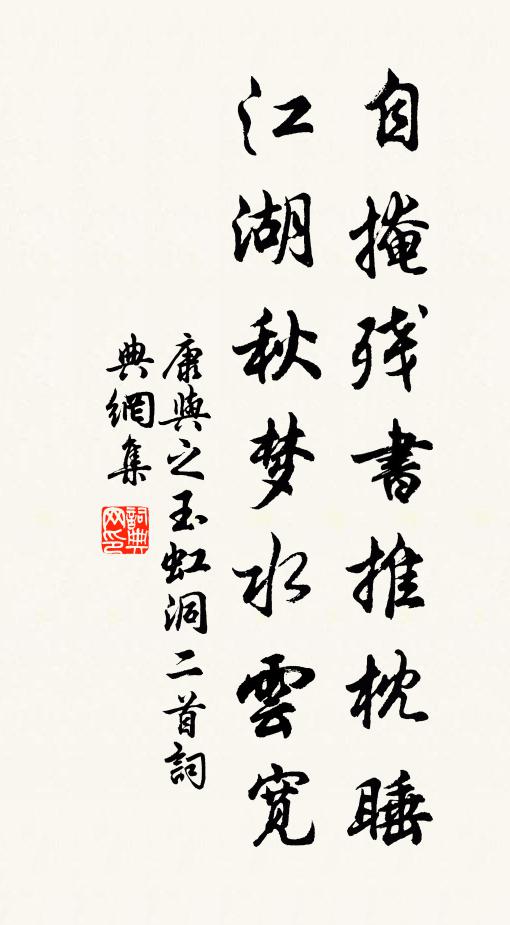 自掩残書推枕睡
江湖秋梦水雲寬
康與之玉虹洞二首詞
典網集
詞典
网印